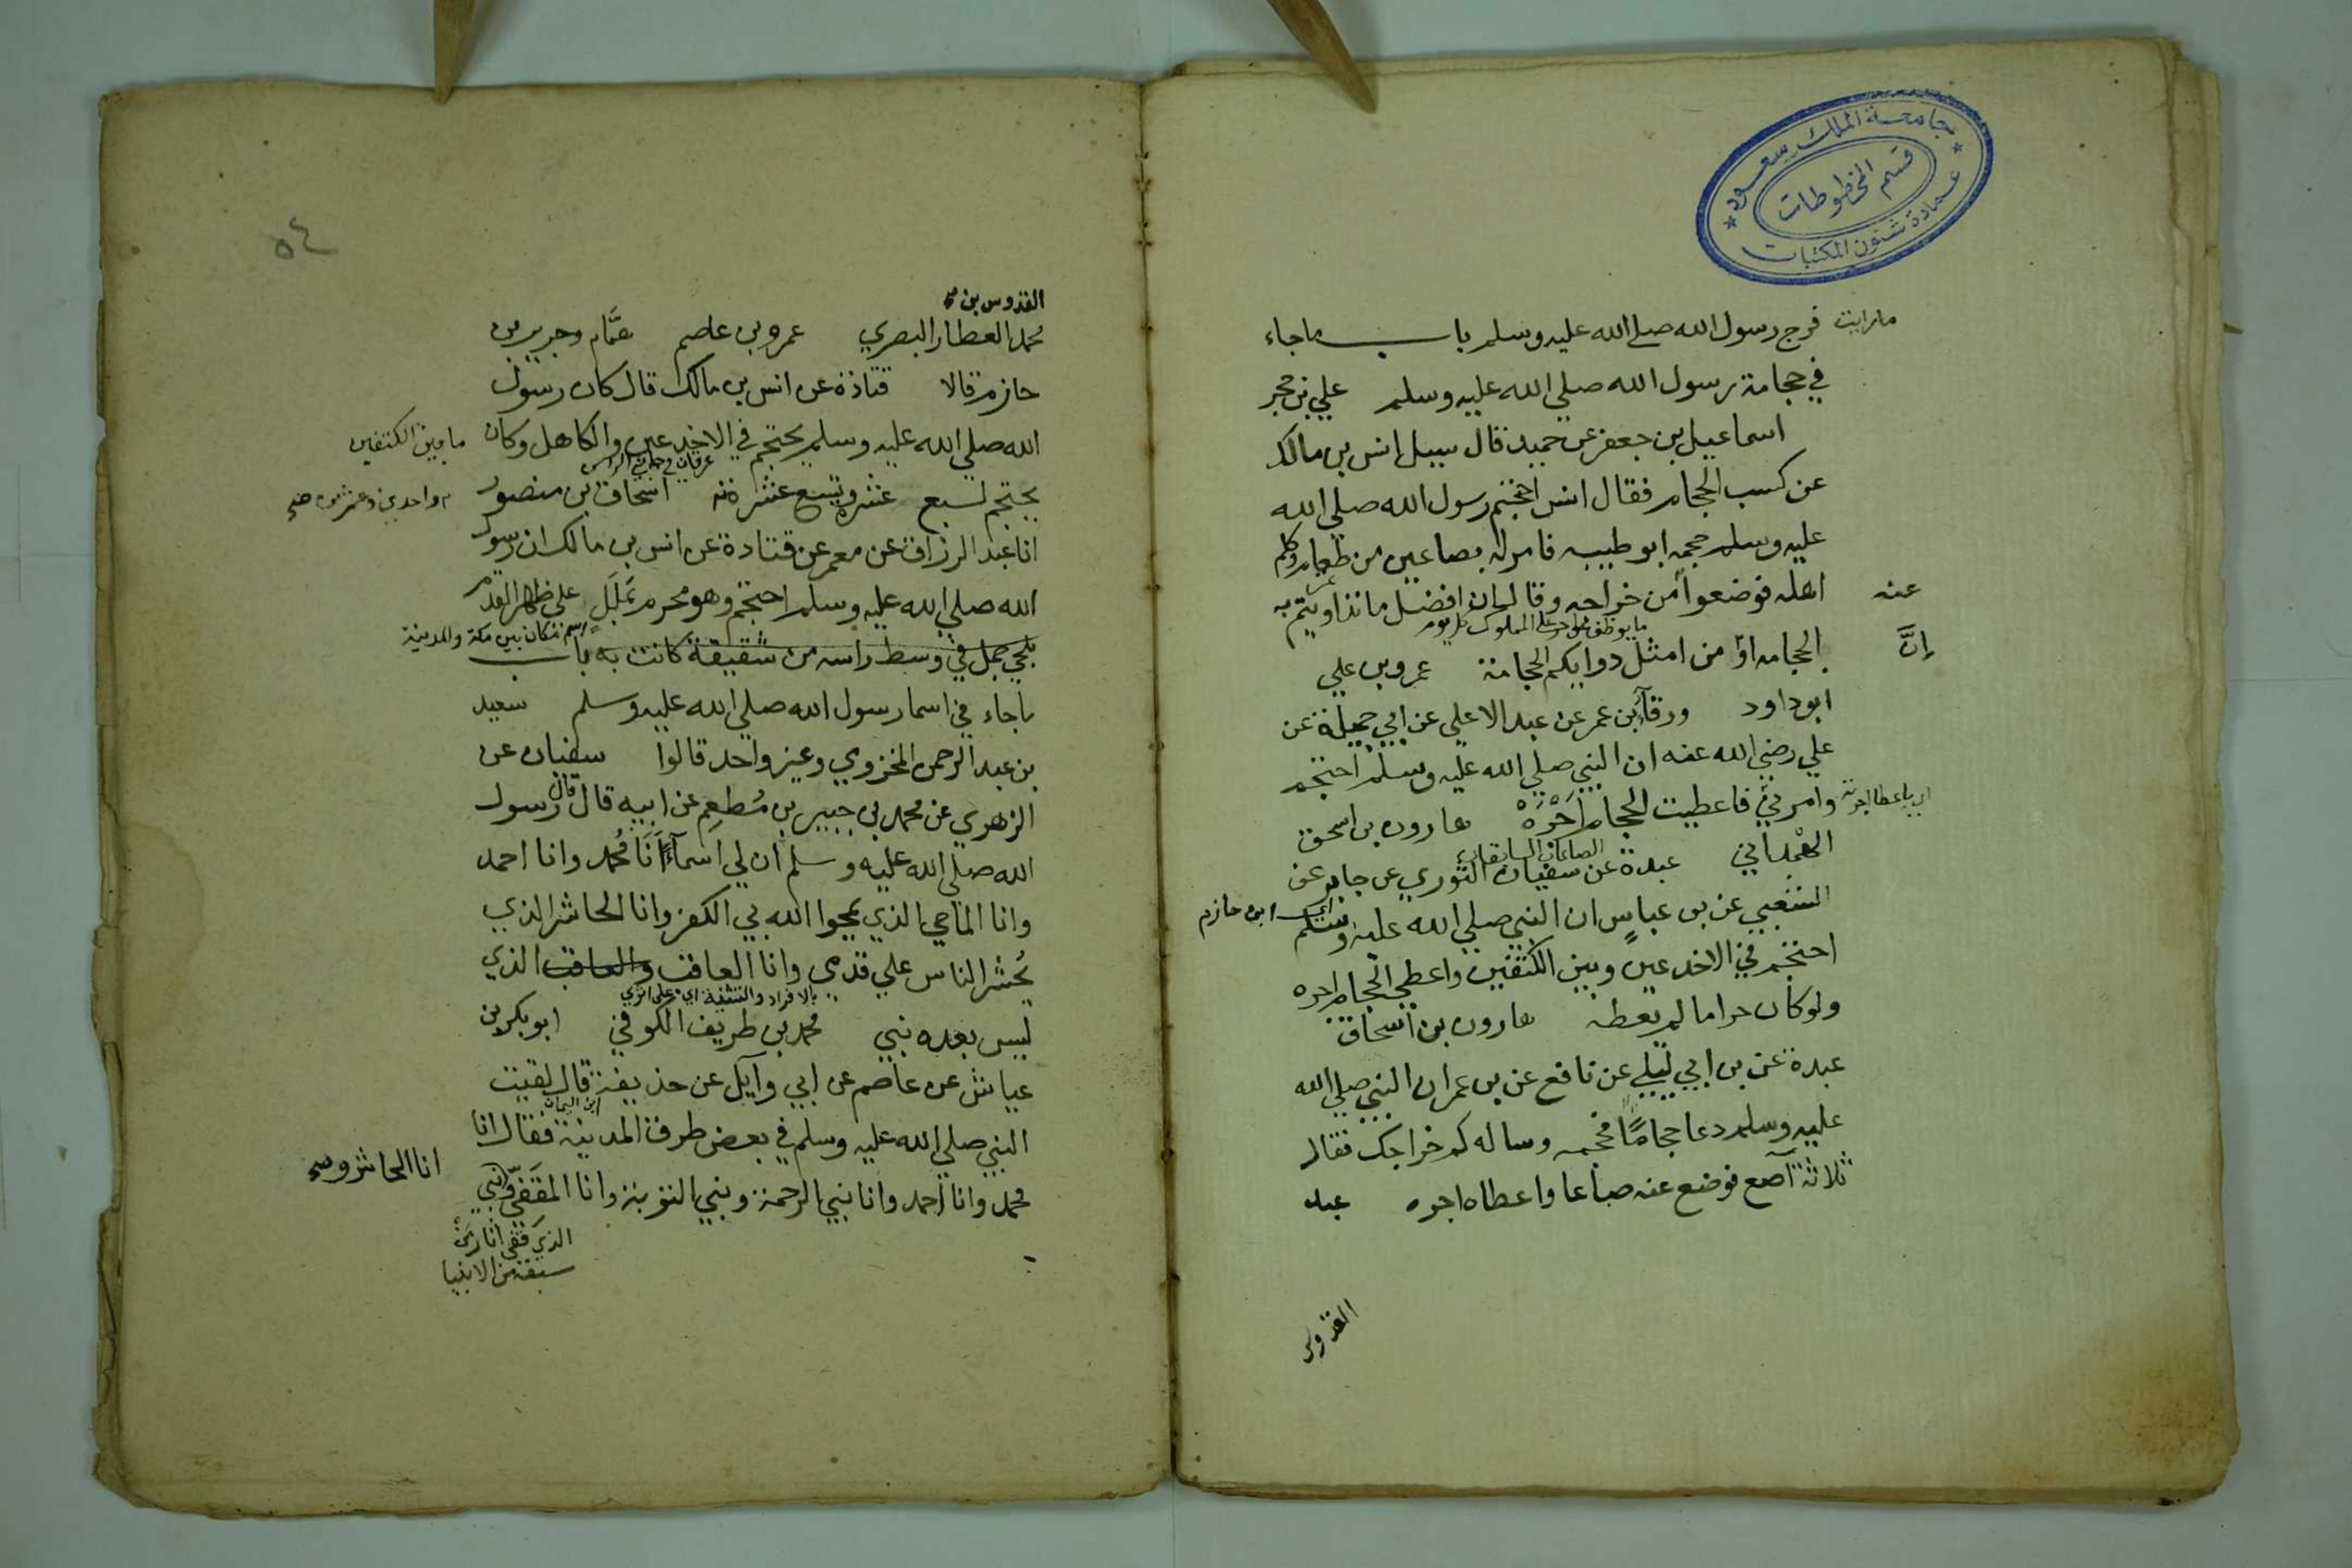 جامعة الملك سعود
قسم المخطوطات
عمادة شئون المكتبات
مارايت فرج رسول الله صلى الله عليه وسلم باب ماجاء
في حجامة رسول الله صلي الله عليه وسلم علي بن حجر
اسماعيل بن جعفر عن حميد قال سيل انس بن مالك
عن كسب الحجام فقال انس احتجم رسول الله صلي الله
عليه وسلم حجمه ابو طيبه فامر له بصاعين من طعام وكلم
اهله فوضعوا من خراجه وقال ان افضل ما تداويتم به
عنه
ما يوظف على المملوك كل يوم
الحجامه او من امثل دوايكم الحجامة عمرو بن علي
إنَّ
ابو داود ورقآء بن عمر عن عبد الاعلي عن ابي جميلة عن
علي رضي الله عنه ان النبي صلي الله عليه وسلم احتجم
وامرني فاعطيت الحجام اجره هارون بن اسحق
اي باعطا اجرته
الصاعان السابقان
الهمداني عبدة عن سفيان الثوري عن جابر عن
الشعبي عن بن عباس ان النبي صلي الله عليه وسلم
ابن حازم
احتجم في الاخدعين وبين الكتفين واعطي الحجام اجره
ولو كان حراما لم يعطه هارون بن اسحاق
عبدة عن بن ابي ليلي عن نافع عن بن عمر ان النبي صلي الله
عليه وسلم دعا حجامًا فحجمه وساله كم خراجك فقال
ثلاثة آصع فوضع عنه صاعا واعطاه اجره عبد
القدوس
٥٤
القدوس بن
محمد العطار البصري عمرو بن عاصم همَّام وجرير بن
حازم قالا قتادة عن انس بن مالك قال كان رسول
الله صلي الله عليه وسلم يحتجم في الاخدعين والكاهل وكان
ما بين الكتفين
عرقان في جانبي الراس
يحتجم لسبع عشره وتسع عشرة اسحاق بن منصور
واحدي وعشرين صح
انا عبد الرزاق عن معمر عن قتادة عن انس بن مالك ان رسول
الله صلي الله عليه وسلم احتجم وهو محرم بملَلٍ علي ظهر القدم
اسم مكان بين مكة والمدينة
بلحي جمل في وسط راسه من شقيقة كانت به باب
ماجاء في اسما رسول الله صلي الله عليه وسلم سعيد
بن عبد الرحمن المخزوي وغير واحد قالوا سفيان عن
الزهري عن محمد بن جبير بن مُطعِم عن ابيه قال قال رسول
الله صلي الله عليه وسلم ان لي اسمآءً انَا مُحمد وانا احمد
وانا الماحي الذي يمحوا الله بي الكفر وانا الحاشر الذي
يُحشر الناس علي قدمي وانا العاقب والعاقب الذي
بالافراد والتثنية اي على اثري
ليس بعده نبي محمد بن طريف الكوفي ابو بكر بن
عياش عن عاصم عن ابي وآيل عن حذيفة قال لقيت
ابن اليمان
النبي صلي الله عليه وسلم في بعض طرق المدينة فقال انا
محمد وانا احمد وانا نبي الرحمة ونبي التوبة وانا المقَفّي ونبي
انا الحاشر
الذي قفى اثار من
سبقه من الانبيا